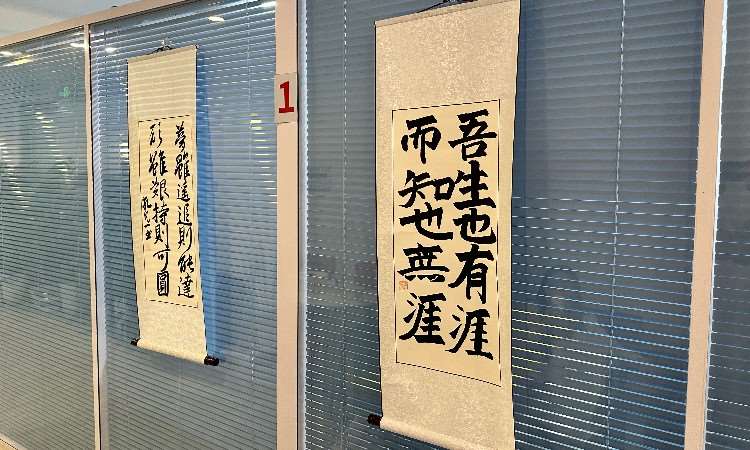 吾生也有涯
而知也無涯
1
夢雖遥追則能達
願雖艱持則可圓